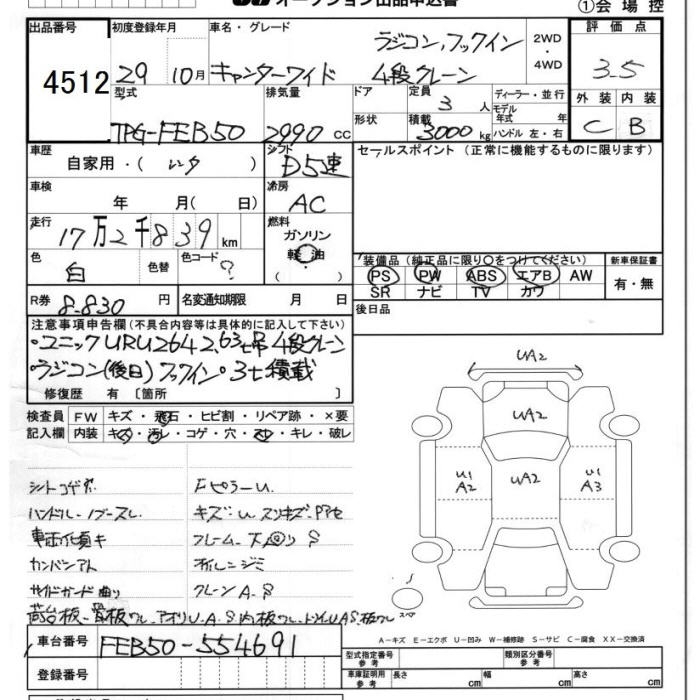 ①会場控
出品番号 4512
初度登録年月 29 10月
車名・グレード キャンターワイド ラジコン,フックイン 4段クレーン
2WD ・ 4WD
評価点 3.5
外装 内装
C B
型式 TPG-FEB50
排気量 2990 cc
ドア 形状
定員 3 人
積載 3000 kg
ディーラー・並行
モデル年式 年
ハンドル 左・右
車歴 自家用・( レンタ )
シフト D5速
セールスポイント (正常に機能するものに限ります)
車検 年 月( 日)
冷房 AC
走行 17万2千839km
燃料 ガソリン 軽油 ( )
色 白 色替 色コード ?
装備品 (純正品に限り〇をつけてください)
PS PW ABS エアB AW
SR ナビ TV カワ
新車保証書 有・無
R券 8.830 円
名変通知期限 月 日
後日品
注意事項申告欄 (不具合内容等は具体的に記入して下さい)
・ユニックURU264 2.63t吊 4段クレーン
・ラジコン(後日)フックイン・3t積載
修復歴 有 〔箇所 〕
検査員記入欄
FW キズ・飛石・ヒビ割・リペア跡・×要
内装 キズ・汚レ・コゲ・穴・スレ・キレ・破レ
シートコゲ穴 FピラーU
ハンドル・ノブスレ
車両傾キ フレーム・下回りS
カンバンアト
サイドガード曲リ クレーンA.S
車台番号 FEB50-554691
登録番号
UA2
UA2
U1 A2
UA2
U1 A3
スペア
A-キズ E-エクボ U-凹み W-補修跡 S-サビ C-腐食 XX-交換済
型式指定番号 参考
類別区分番号 参考
車庫証明用 参考 長さ cm 幅 cm 高さ cm